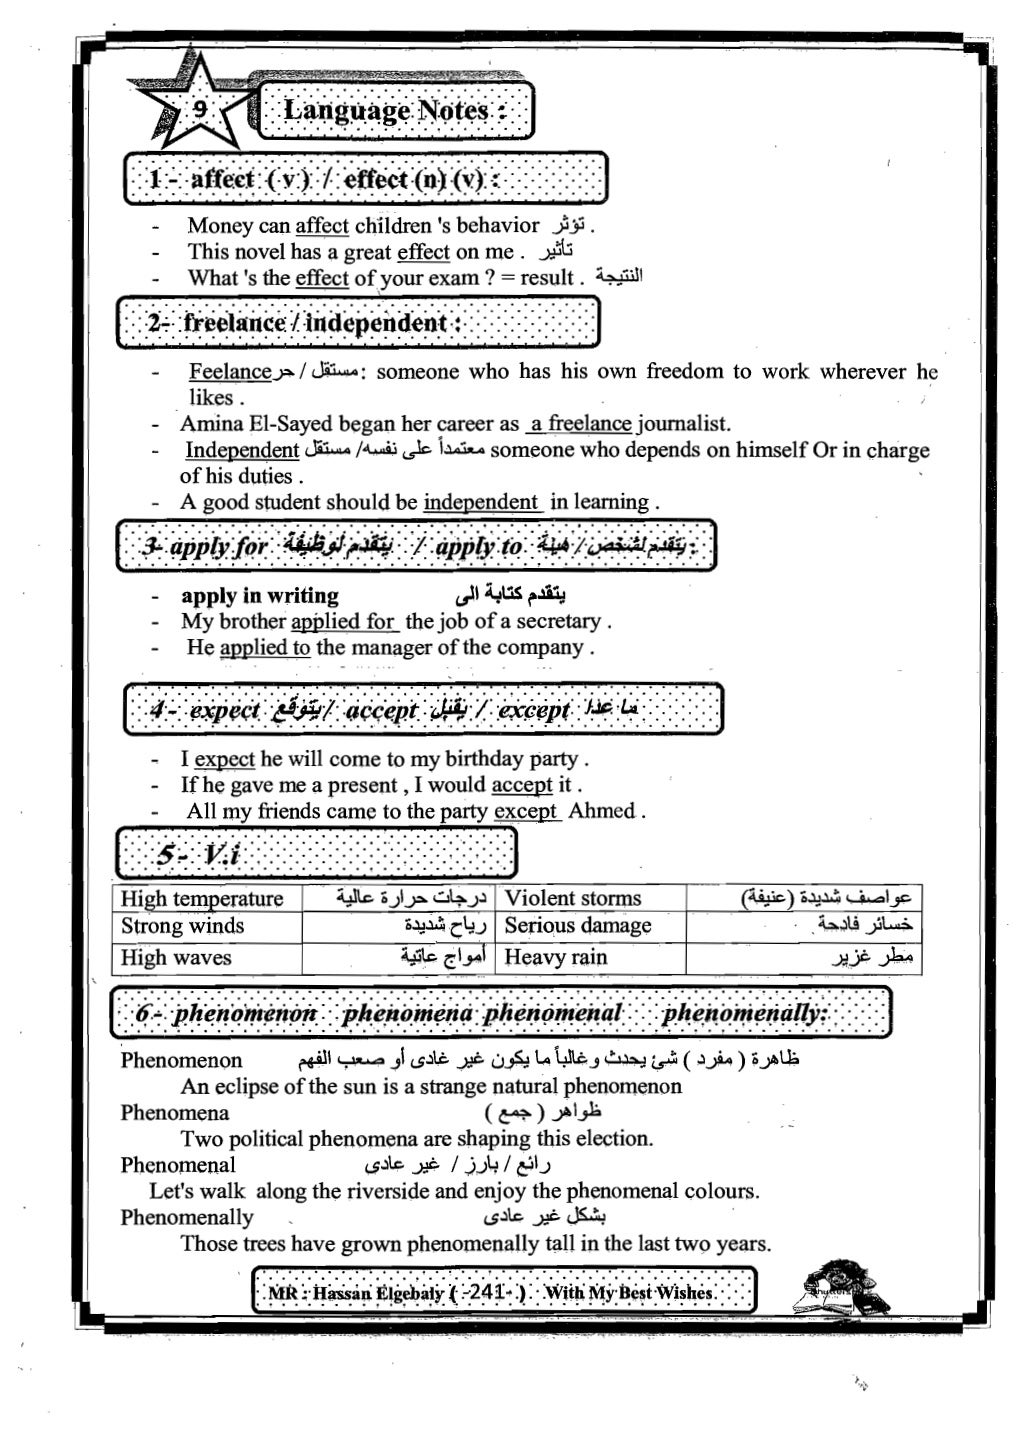 9
Language Notes :
1 - affect ( v ) / effect (n) (v) :
- Money can affect children 's behavior تؤثر .
- This novel has a great effect on me . تأثير
- What 's the effect of your exam ? = result . النتيجة
2- freelance / independent :
- Feelance مستقل / حر: someone who has his own freedom to work wherever he
likes .
- Amina El-Sayed began her career as a freelance journalist.
- Independent معتمداً على نفسه/ مستقل someone who depends on himself Or in charge
of his duties .
- A good student should be independent in learning .
3- apply for يتقدم لوظيفة / apply to يتقدم لشخص / هيئة :
- apply in writing يتقدم كتابة الى
- My brother applied for the job of a secretary .
- He applied to the manager of the company .
4 - expect يتوقع / accept يقبل / except ما عدا
- I expect he will come to my birthday party .
- If he gave me a present , I would accept it .
- All my friends came to the party except Ahmed .
5 - V.i
High temperature درجات حرارة عالية Violent storms عواصف شديدة (عنيفة)
Strong winds رياح شديدة Serious damage خسائر فادحة
High waves أمواج عاتية Heavy rain مطر غزير
6 - phenomenon phenomena phenomenal phenomenally:
Phenomenon ظاهرة ( مفرد ) شئ يحدث وغالباً ما يكون غير عادى أو صعب الفهم
An eclipse of the sun is a strange natural phenomenon
Phenomena ظواهر ( جمع )
Two political phenomena are shaping this election.
Phenomenal رائع / بارز / غير عادى
Let's walk along the riverside and enjoy the phenomenal colours.
Phenomenally بشكل غير عادى
Those trees have grown phenomenally tall in the last two years.
MR : Hassan Elgebaly ( -241- ) With My Best Wishes